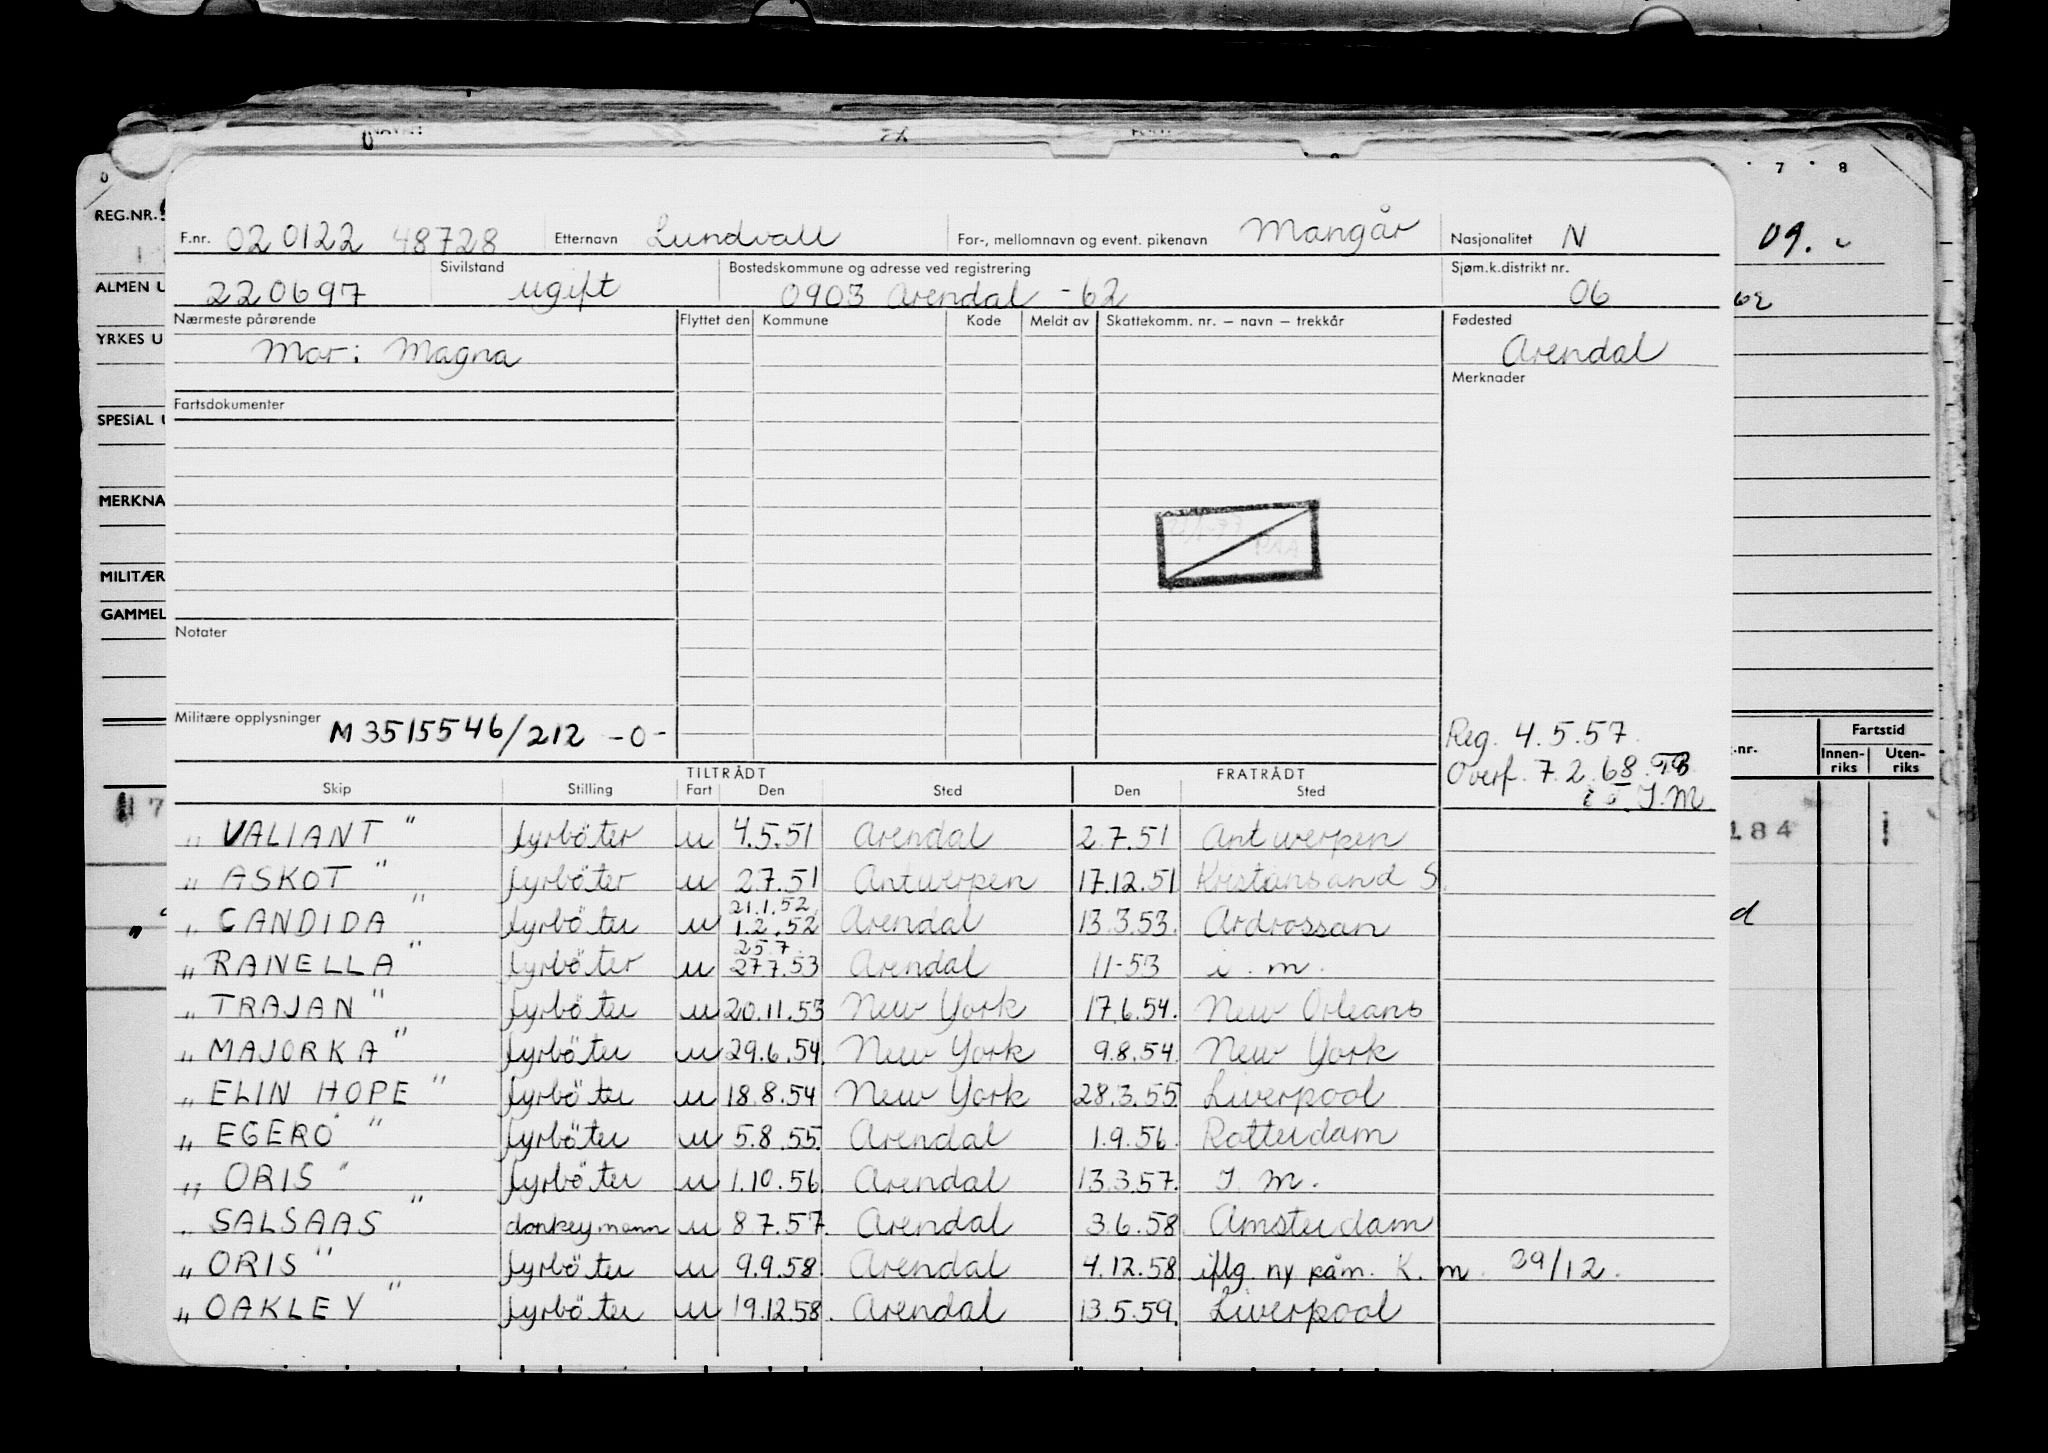 REG.NR.
F.nr. 020122 48728 Etternavn Lundvall For-, mellomnavn og event. pikenavn Mangår Nasjonalitet N
09.
220697 Sivilstand ugift Bostedskommune og adresse ved registrering 0903 Arendal -62 Sjøm.k.distrikt nr. 06
ALMEN U
62
Nærmeste pårørende Flyttet den Kommune Kode Meldt av Skattekomm. nr. – navn – trekkår Fødested
YRKES U
Mor: Magna Arendal
Merknader
Fartsdokumenter
SPESIAL
MERKNA
MILITÆR
GAMMEL
Notater
Militære opplysninger M3515546/212 -0-
Reg. 4.5.57.
Overf. 7.2.68.
J.M
nr. Fartstid
Innen-riks Uten-riks
TILTRÅDT FRATRÅDT
Skip Stilling Fart Den Sted Den Sted
„ VALIANT " fyrböter u 4.5.51 Arendal 2.7.51 Antwerpen
184
„ ASKOT " fyrböter u 2.7.51 Antwerpen 17.12.51 Kristansand S.
21.1.52
„ CANDIDA " fyrböter u 1.2.52 Arendal 13.3.53. Ardrossan
d
25.7.
„ RANELLA " fyrböter u 27.7.53 Arendal 11-53 i. m.
„ TRAJAN " fyrböter u 20.11.53 New York 17.6.54. New Orleans
„ MAJORKA " fyrböter u 29.6.54. New York 9.8.54. New York
„ ELIN HOPE " fyrböter u 18.8.54 New York 28.3.55. Liverpool
„ EGERO " fyrböter u 5.8.55. Arendal 1.9.56. Rotterdam
„ ORIS " fyrböter u 1.10.56. Arendal 13.3.57. I. m.
„ SALSAAS " donkeymann u 8.7.57. Arendal 3.6.58. Amsterdam
„ ORIS " fyrböter u 9.9.58. Arendal 4.12.58. iflg. ny påm. K. m. 29/12.
„ OAKLEY " fyrböter u 19.12.58. Arendal 13.5.59. Liverpool